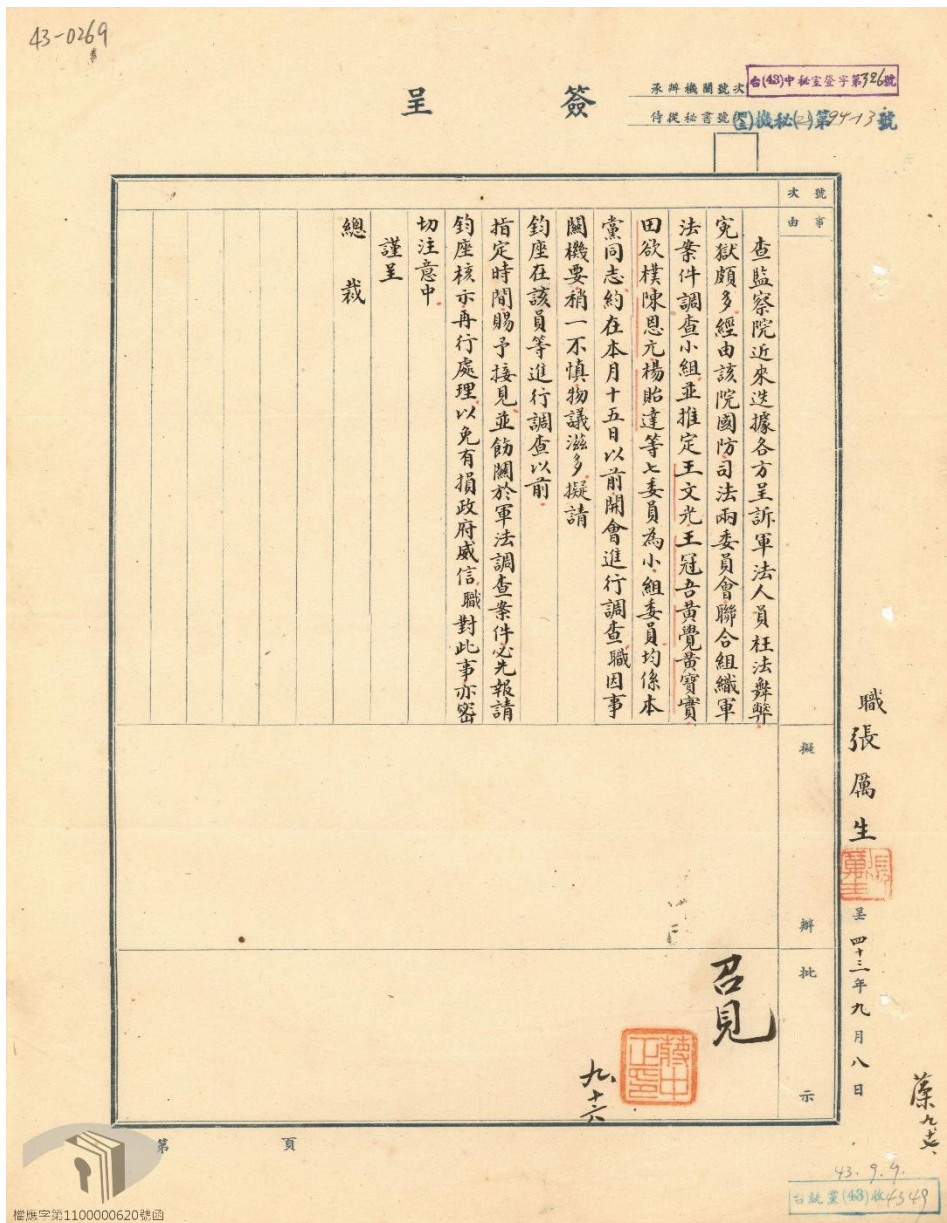 43-0269
簽呈
承辦機關號次
台(43)中秘室登字第326號
侍從秘書號次
機秘(二)第94-13號
號次
事由
查監察院近來迭據各方呈訴軍法人員枉法舞弊
冤獄頗多經由該院國防司法兩委員會聯合組織軍
法案件調查小組並推定王文光王冠吾黃覺黃寶實
田欲樸陳恩元楊貽達等七委員為小組委員均係本
黨同志約在本月十五日以前開會進行調查職因事
關機要稍一不慎物議滋多擬請
鈞座在該員等進行調查以前
指定時間賜予接見並飭關於軍法調查案件必先報請
鈞座核示再行處理以免有損政府威信職對此事亦密
切注意中
謹呈
總裁
職張厲生
張厲生
呈四十三年九月八日
擬辦
批示
召見
蔣中正印
九、十六
第頁
43.9.9.
台統黨(43)收4349
檔應字第1100000620號函